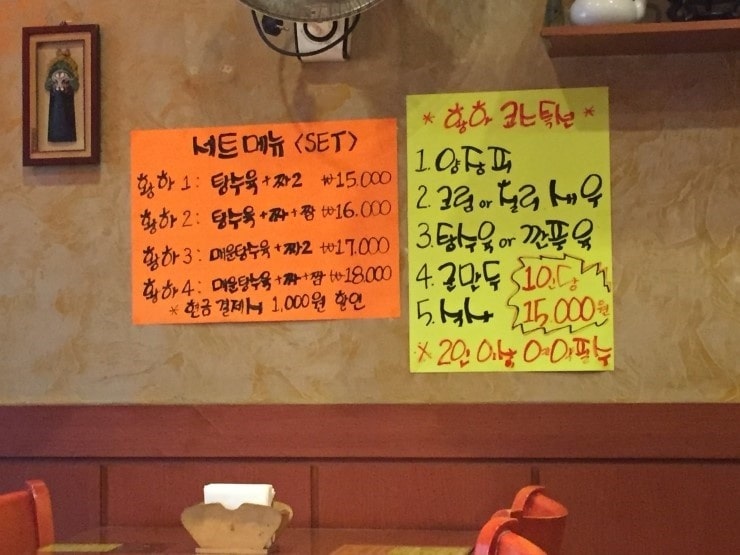 세트메뉴 <SET>
황하 1: 탕수육+짜2 ₩15.000
황하 2: 탕수육+짜+짬 ₩16.000
황하 3: 매운탕수육+짜2 ₩17.000
황하 4: 매운탕수육+짜+짬 ₩18.000
* 현금 결제시 1,000원 할인
* 황하 코스특선 *
1. 양장피
2. 크림 or 칠리 새우
3. 탕수육 or 깐풍육
4. 군만두
5. 식사
1인당
15.000원
※ 2인 이상 예약필수